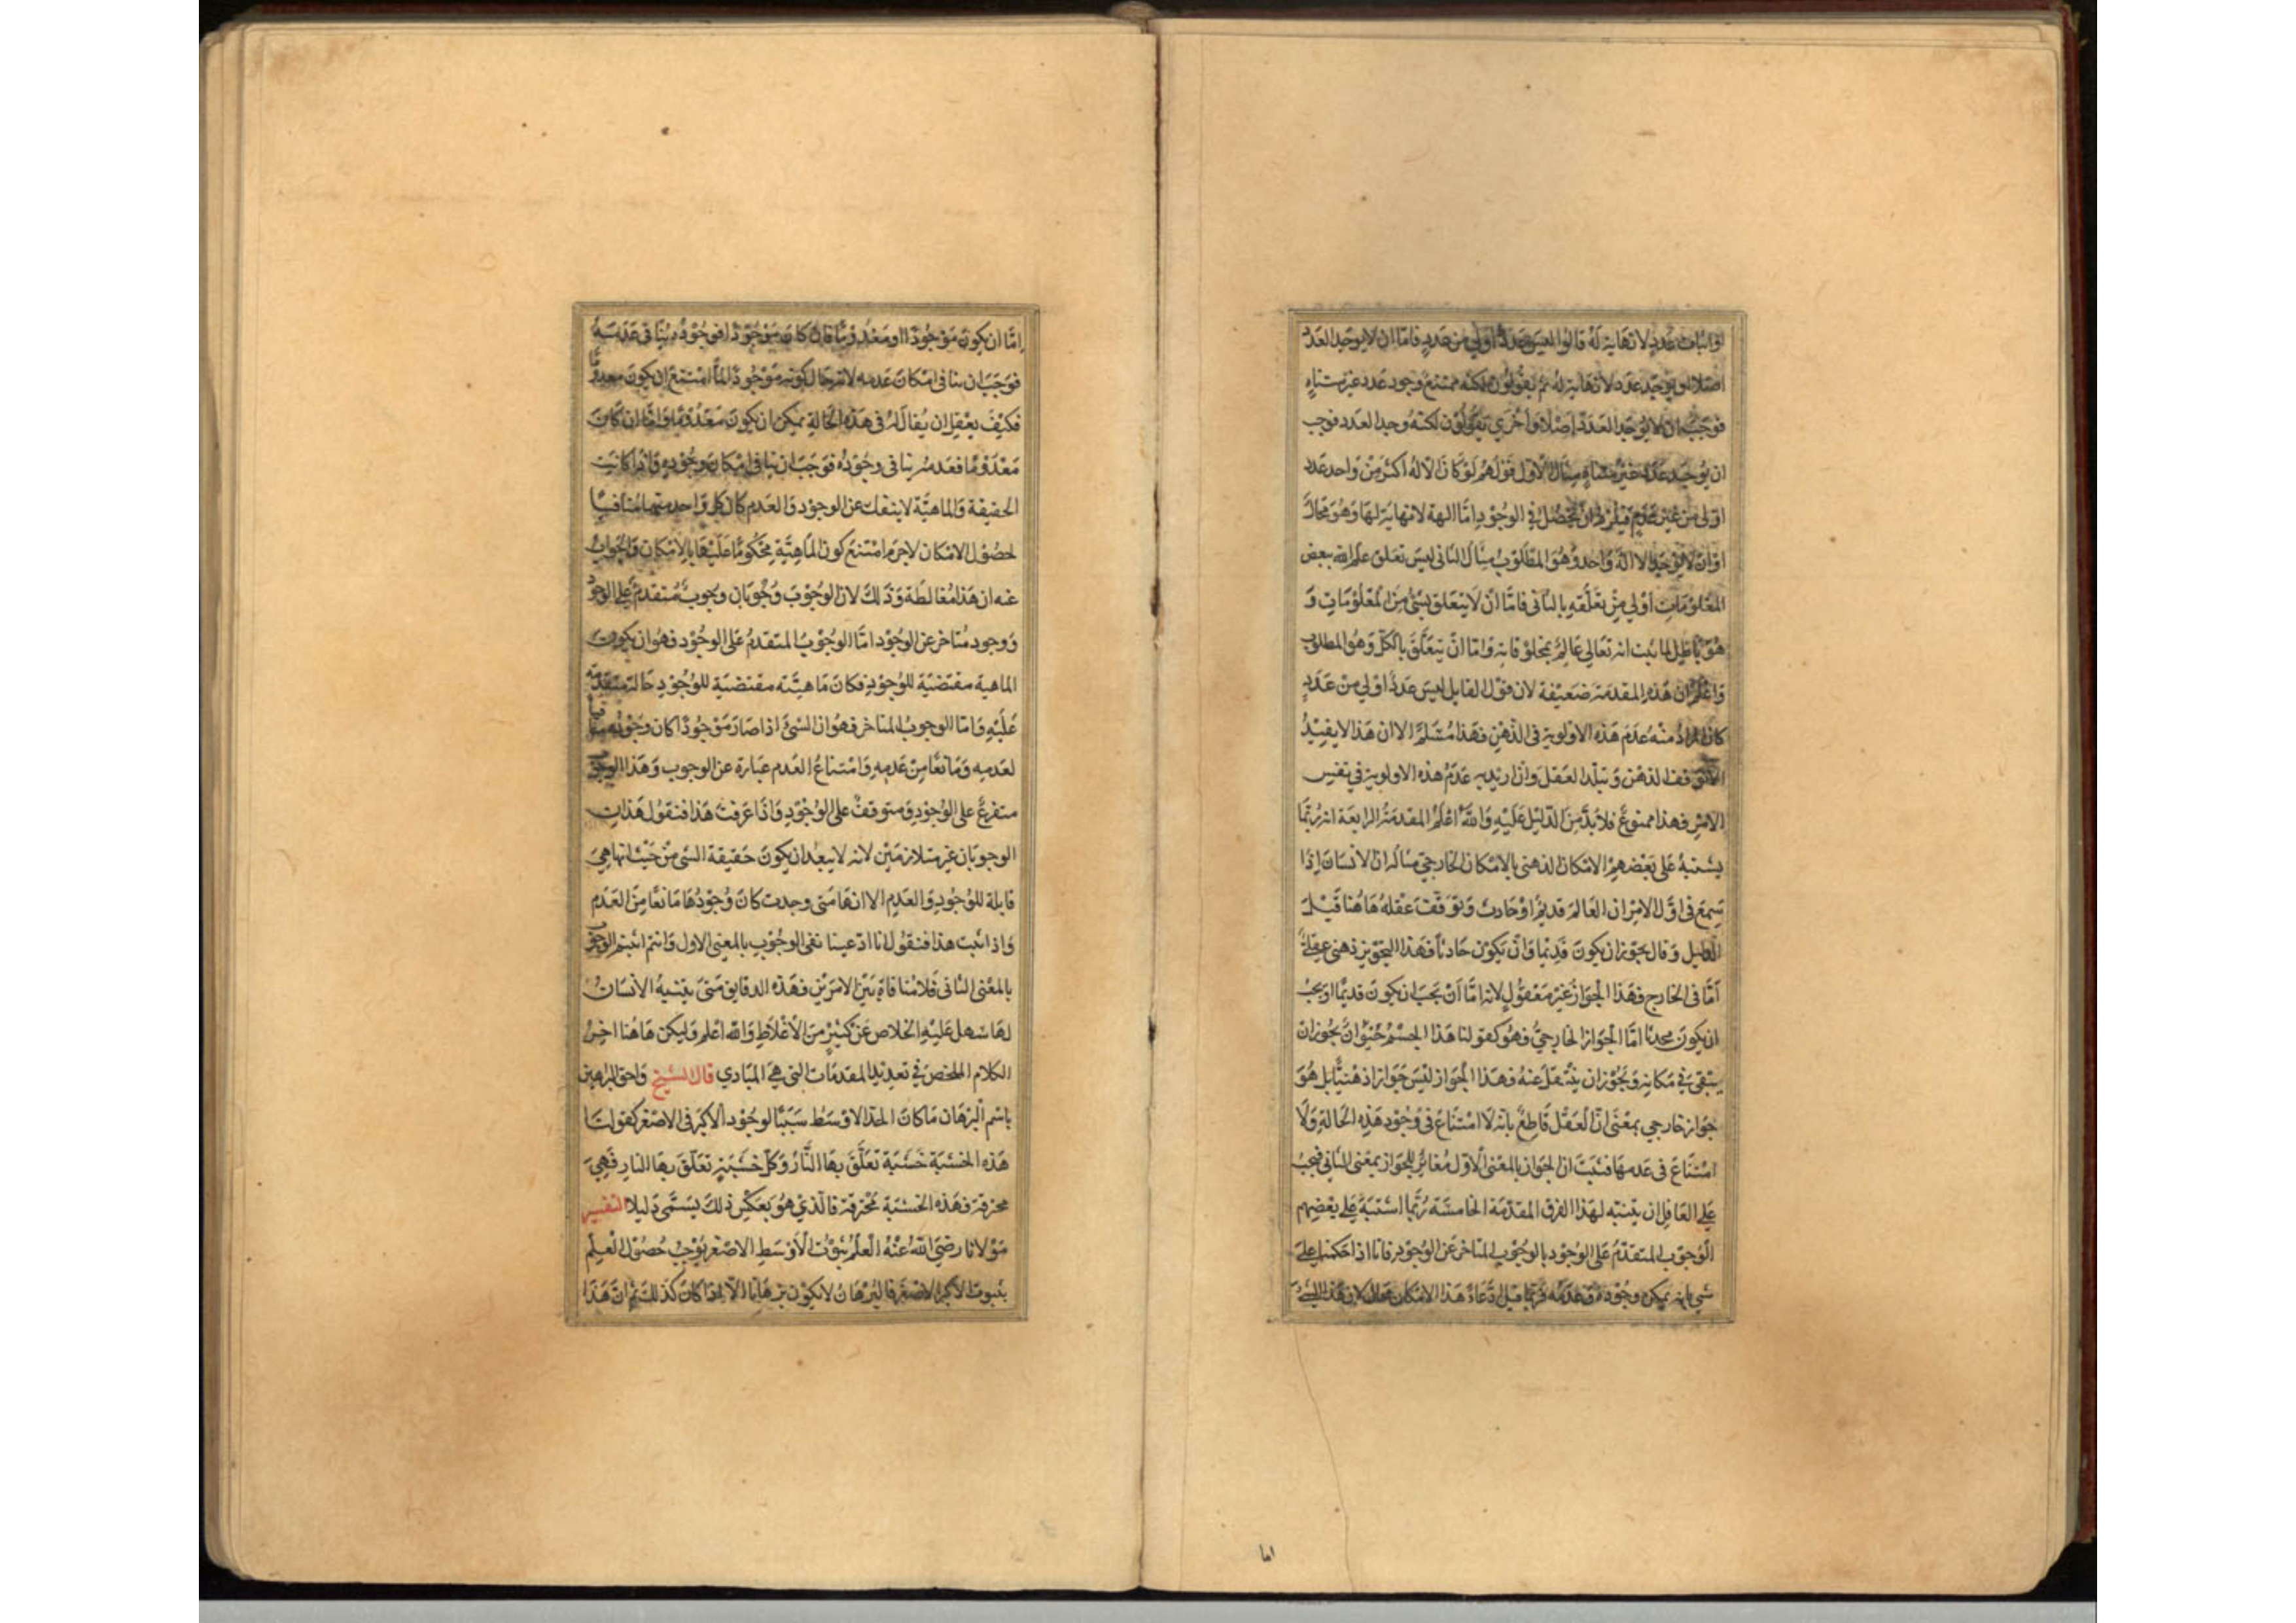 او اثبات عدد لا نهاية له قالوا ليس عدد اولى من عدد فاما ان لا يوجد العدد
اصلا او يوجد عدد لا نهاية له ثم يقولون لكنه ممتنع وجود عدد غير متناه
فوجب ان لا يوجد العدد اصلا واخرى يقولون لكنه وجد العدد فوجب
ان يوجد عدد غير متناه مثال الاول قولهم لو كان الاله اكثر من واحد عدد
اولى من غير عدد فيلزم ان يحصل في الوجود اما الهة لا نهاية لها وهو محال
او ان لا يوجد الا اله واحد وهو المطلوب مثال الثاني ليس تعلق علم الله ببعض
المعلومات اولى من تعلقه بالثاني فاما ان لا يتعلق بشئ من المعلومات و
هو باطل لما ثبت انه تعالى عالم بمخلوقاته واما ان يتعلق بالكل وهو المطلوب
واعلم ان هذه المقدمة ضعيفة لان قول القايل ليس عدد اولى من عدد
كان المراد منه عدم هذه الاولوية في الذهن فهذا مسلم الا ان هذا لا يفيد
الا توقف الذهن وتبلد العقل وان اريد به عدم هذه الاولوية في نفس
الامر فهذا ممنوع فلا بد من الدليل عليه والله اعلم المقدمة الرابعة انه ربما
يشتبه على بعضهم الامكان الذهني بالامكان الخارجي مثاله ان الانسان اذا
سمع في اول الامر ان العالم قديم او حادث وتوقفت عقله هاهنا قبل
الدليل وقال يجوز ان يكون قديما وان يكون حادثا فهذا التجويز ذهني عقلي
اما في الخارج فهذا الجواز غير معقول لانه اما ان يجب ان يكون قديما او يجب
ان يكون محدثا اما الجواز الخارجي فهو كقولنا هذا الجسم حيوان يجوز ان
يبقى في مكانه ويجوز ان ينتقل عنه فهذا الجواز ليس جوازا ذهنيا بل هو
جواز خارجي بمعنى ان العقل قاطع بانه لا امتناع في وجود هذه الحالة ولا
امتناع في عدمها فثبت ان الجواز بالمعنى الاول مغائر للجواز بمعنى الثاني فيجب
على العاقل ان يتنبه لهذا الفرق المقدمة الخامسة ربما اشتبه على بعضهم
الوجوب المتقدم على الوجود بالوجوب المتاخر عن الوجود فانا اذا حكمنا على
شي بانه يمكن وجوده وعدمه فربما قيل ادعاء هذا الامكان محال لان هذا الشئ
اما
اما ان يكون موجودا او معدوما فان كان موجودا فوجوده ينافي عدمه
فوجب ان ينافي امكان عدمه لانه حال كونه موجودا لما امتنع ان يكون معدوما
فكيف يعقل ان يقال انه في هذه الحالة يمكن ان يكون معدوما واما ان كان
معدوما فعدمه ينافي وجوده فوجب ان ينافي امكان وجوده واذا كانت
الحقيقة والماهية لا ينفك عن الوجود والعدم كان كل واحد منهما منافيا
لحصول الامكان لاجرم امتنع كون الماهية محكوما عليها بالامكان والجواب
عنه ان هذا مغالطة وذلك لان الوجوب وجوبان وجوب متقدم على الوجود
ووجود متاخر عن الوجود اما الوجوب المتقدم على الوجود فهو ان يكون
الماهية مقتضية للوجود فكان ماهيته مقتضية للوجود حالة متقدمة
عليه واما الوجوب المتاخر فهو ان الشئ اذا صار موجودا كان وجوده منافيا
لعدمه ومانعا من عدمه وامتناع العدم عبارة عن الوجوب وهذا الوجوب
متفرع على الوجود ومتوقف على الوجود واذا عرفت هذا فنقول هذان
الوجوبان غير متلازمين لانه لا يبعد ان يكون حقيقة الشى من حيث انها هي
قابلة للوجود والعدم الا انها متى وجدت كان وجودها مانعا من العدم
واذا ثبت هذا فنقول انا ادعينا نفي الوجوب بالمعنى الاول وانتم اثبتم الوجوب
بالمعنى الثاني فلا منافاة بين الامرين فهذه الدقايق متى يتنبه الانسان
لها سهل عليه الخلاص عن كثير من الاغلاط والله اعلم وليكن هاهنا اخر
الكلام الملخص في تعديد المقدمات التي هي المبادي قال الشيخ واحق البراهين
باسم البرهان ما كان الحد الاوسط سببا لوجود الاكبر في الاصغر كقولنا
هذه الخشبة خشبة تعلق بها النار وكل خشبة تعلق بها النار فهي
محترقة فهذه الخشبة محترقة فالذي هو بعكس ذلك يسمى دليلا التفسير
مولانا رضي الله عنه العلم بثبوت الاوسط الاصغر يوجب حصول العلم
بثبوت الاكبر الاصغر فالبرهان لا يكون برهانا الا اذا كان كذلك ثم ان هذا